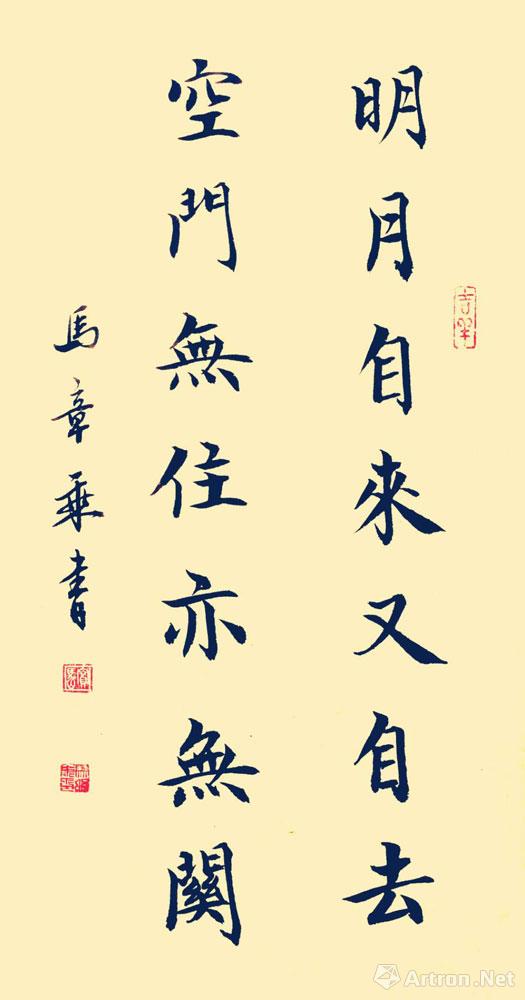 明月自來又自去
空門無住亦無關
馬章乘書
Artron.Net